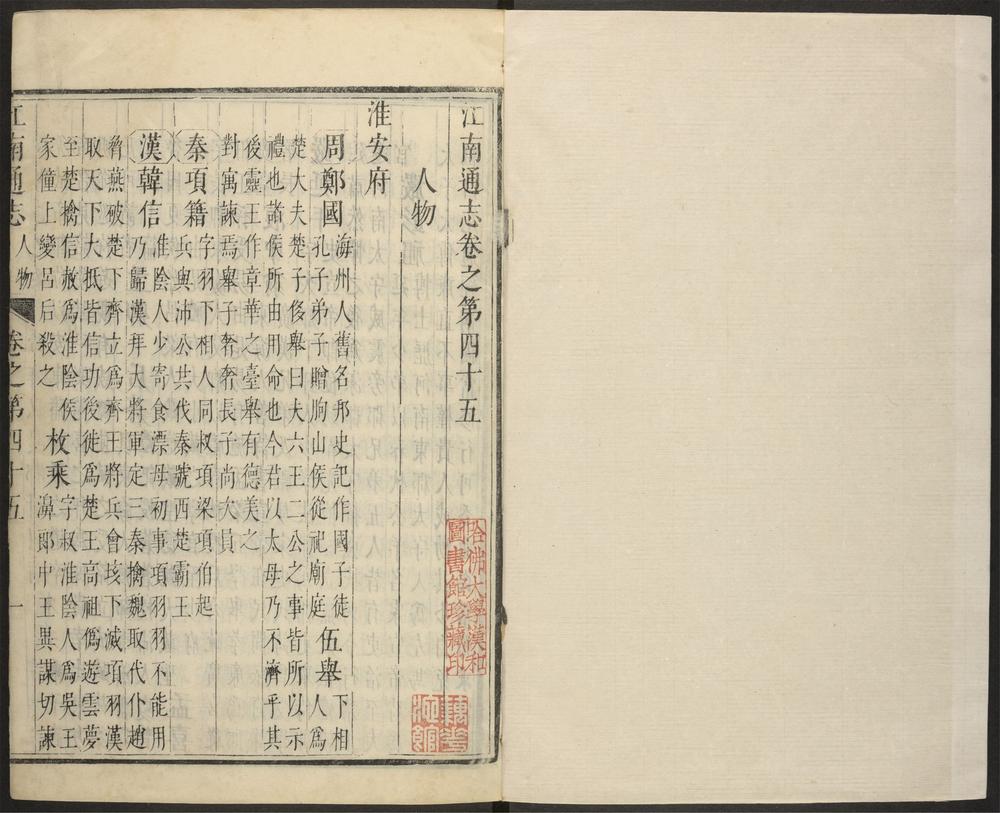 江南通志卷之第四十五
人物
淮安府
周鄭國海州人舊名邦史記作國子徒
孔子弟子贈朐山侯從祀廟庭伍舉下相
人爲
楚大夫楚子侈舉曰夫六王二公之事皆所以示
禮也諸侯所由用命也今君以太母乃不濟乎其
後靈王作章華之臺舉有德美之
對寓諫焉舉子奢奢長子尚大員
秦項籍字羽下相人同叔項梁項伯起
兵與沛公共伐秦號西楚霸王
漢韓信淮陰人少寄食漂母初事項羽羽不能用
乃歸漢拜大將軍定三秦擒魏取代仆趙
脅燕破楚下齊立爲齊王將兵會垓下滅項羽漢
取天下大抵皆信功後徙爲楚王高祖僞遊雲夢
至楚擒信赦爲淮陰侯
家僮上變呂后殺之枚乘字叔淮陰人爲吳王
濞郎中王異謀切諫
江南通志 人物 卷之第四十五 一
哈佛大學漢和
圖書館珍藏印